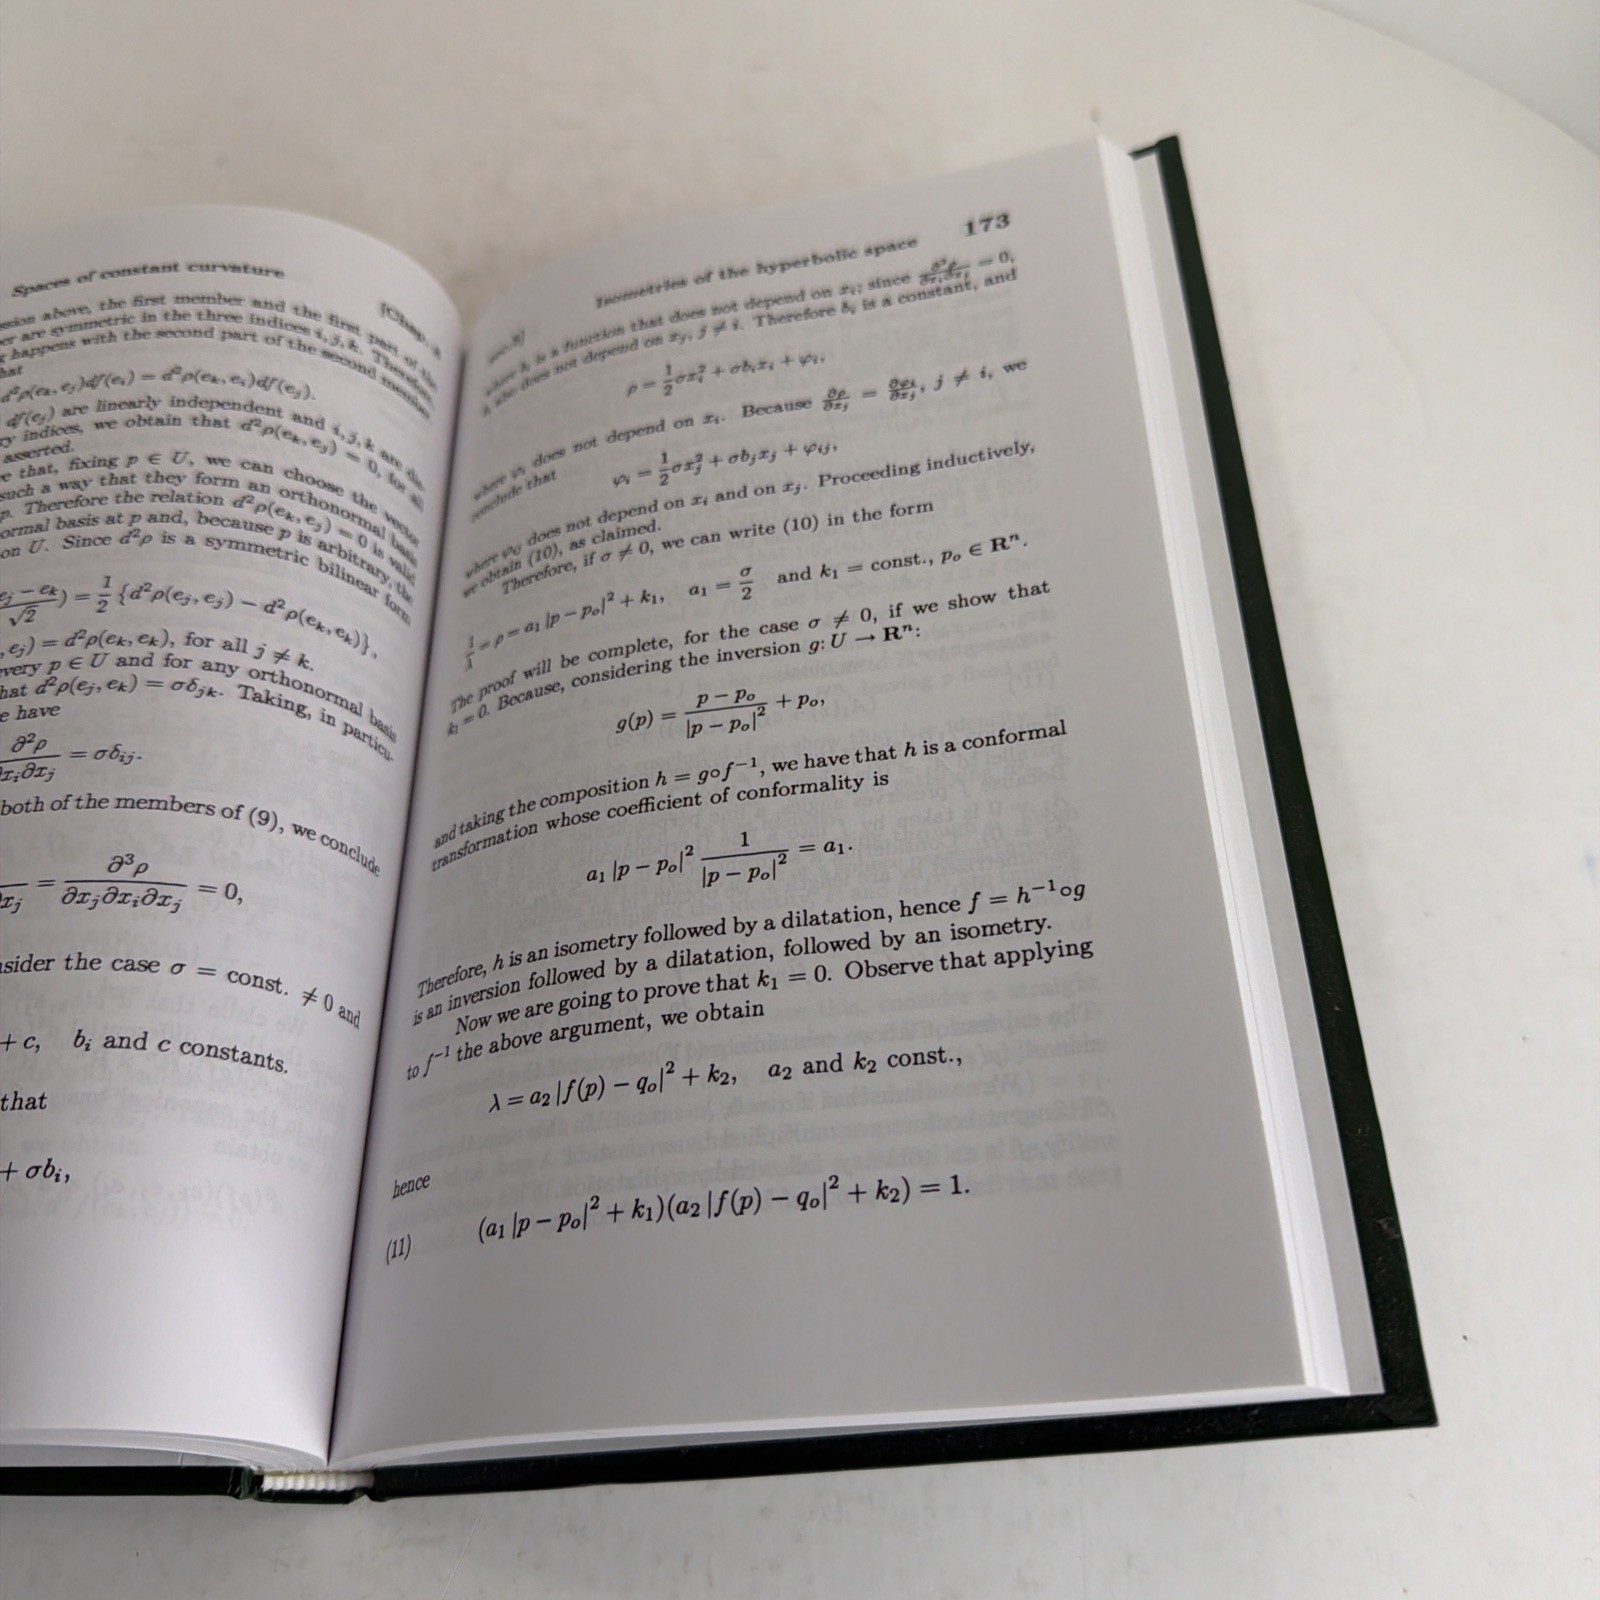 Spaces of constant curvature
[Chap.
above, the first member and the first part of the
are symmetric in the three indices i, j, k. Therefore
happens with the second part of the second member
d²ρ(eₖ, eⱼ)df(eᵢ) = d²ρ(eₖ, eᵢ)df(eⱼ).
df(eⱼ) are linearly independent and i, j, k are
indices, we obtain that d²ρ(eₖ, eⱼ) = 0, for all
asserted.
that, fixing p ∈ U, we can choose the
such a way that they form an orthonormal basis
p. Therefore the relation d²ρ(eₖ, eⱼ) = 0 is valid
basis at p and, because p is arbitrary, the
on U. Since d²ρ is a symmetric bilinear form
eⱼ − eₖ / √2) = 1/2 {d²ρ(eⱼ, eⱼ) − d²ρ(eₖ, eₖ)},
, eⱼ) = d²ρ(eₖ, eₖ), for all j ≠ k.
every p ∈ U and for any orthonormal basis
d²ρ(eⱼ, eₖ) = σδⱼₖ. Taking, in particu-
have
∂²ρ / ∂xᵢ∂xⱼ = σδᵢⱼ.
both of the members of (9), we conclude
= ∂³ρ / ∂xⱼ∂xᵢ∂xⱼ = 0,
the case σ = const. ≠ 0 and
+ c, bᵢ and c constants.
that
+ σbᵢ,
Isometries of the hyperbolic space 173
where h is a function that does not depend on xᵢ; since = 0,
does not depend on xⱼ, j ≠ i. Therefore bᵢ is a constant, and
ρ = 1/2 σxᵢ² + σbᵢxᵢ + φᵢ,
where φᵢ does not depend on xᵢ. Because ∂ρ/∂xⱼ = ∂φᵢ/∂xⱼ, j ≠ i, we
conclude that
φᵢ = 1/2 σxⱼ² + σbⱼxⱼ + φᵢⱼ,
where φᵢⱼ does not depend on xᵢ and on xⱼ. Proceeding inductively,
we obtain (10), as claimed.
Therefore, if σ ≠ 0, we can write (10) in the form
1/λ = ρ = a₁ |p − pₒ|² + k₁, a₁ = σ/2 and k₁ = const., pₒ ∈ Rⁿ.
The proof will be complete, for the case σ ≠ 0, if we show that
k₁ = 0. Because, considering the inversion g: U → Rⁿ:
g(p) = p − pₒ / |p − pₒ|² + pₒ,
and taking the composition h = g∘f⁻¹, we have that h is a conformal
transformation whose coefficient of conformality is
a₁ |p − pₒ|² 1 / |p − pₒ|² = a₁.
Therefore, h is an isometry followed by a dilatation, hence f = h⁻¹∘g
is an inversion followed by a dilatation, followed by an isometry.
Now we are going to prove that k₁ = 0. Observe that applying
to f⁻¹ the above argument, we obtain
λ = a₂ |f(p) − qₒ|² + k₂, a₂ and k₂ const.,
hence
(11) (a₁ |p − pₒ|² + k₁)(a₂ |f(p) − qₒ|² + k₂) = 1.